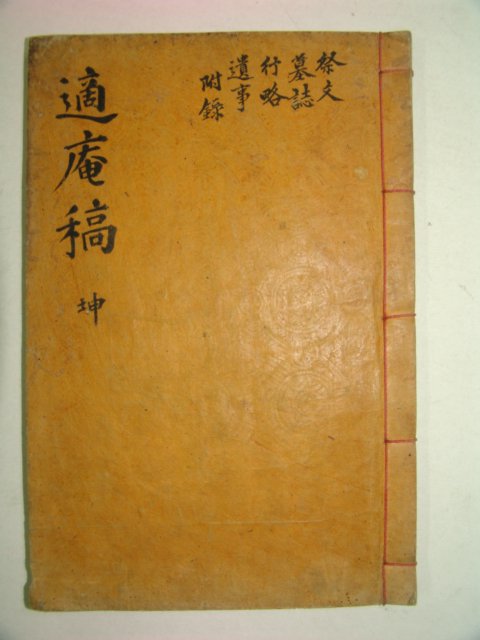 祭文
墓誌
行略
遺事
附錄
適庵稿 坤